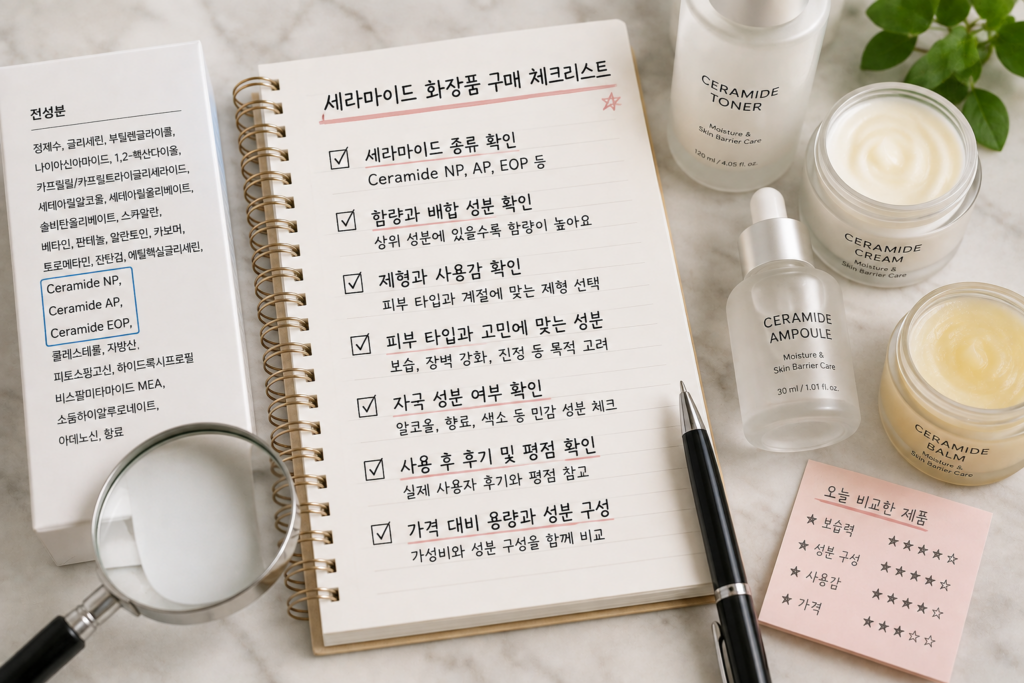 전성분
정제수, 글리세린, 부틸렌글라이콜,
나이아신아마이드, 1,2-헥산다이올,
카프릴릴/카프트라이글리세라이드,
세테아릴알코올, 세테아릴올리베이트,
솔비탄올리베이트, 스카알란,
베타인, 판테놀, 알란토인, 카보머,
토로메타민, 잔탄검, 에틸헥실글리세린,
Ceramide NP,
Ceramide AP,
Ceramide EOP,
콜레스테롤, 지방산,
피토스핑고신, 하이드록시프로필
비스팔미타마이드 MEA,
소듐하이알루로네이트,
아데노신, 향료
세라마이드 화장품 구매 체크리스트
세라마이드 종류 확인
Ceramide NP, AP, EOP 등
함량과 배합 성분 확인
상위 성분에 있을수록 함량이 높아요
제형과 사용감 확인
피부 타입과 계절에 맞는 제형 선택
피부 타입과 고민에 맞는 성분
보습, 장벽 강화, 진정 등 목적 고려
자극 성분 여부 확인
알코올, 향료, 색소 등 민감 성분 체크
사용 후 후기 및 평점 확인
실제 사용자 후기와 평점 참고
가격 대비 용량과 성분 구성
가성비와 성분 구성을 함께 비교
CERAMIDE
TONER
Moisture &
Skin Barrier Care
120 ml / 4.05 fl. oz.
CERAMIDE
CREAM
Moisture &
Skin Barrier Care
CERAMIDE
AMPOULE
Moisture &
Skin Barrier Care
30 ml / 1.01 fl. oz.
CERAMIDE
BALM
Moisture &
Skin Barrier Care
오늘 비교한 제품
★ 보습력 ★★★★☆
★ 성분 구성 ★★★★☆
★ 사용감 ★★★★☆
★ 가격 ★★★☆☆